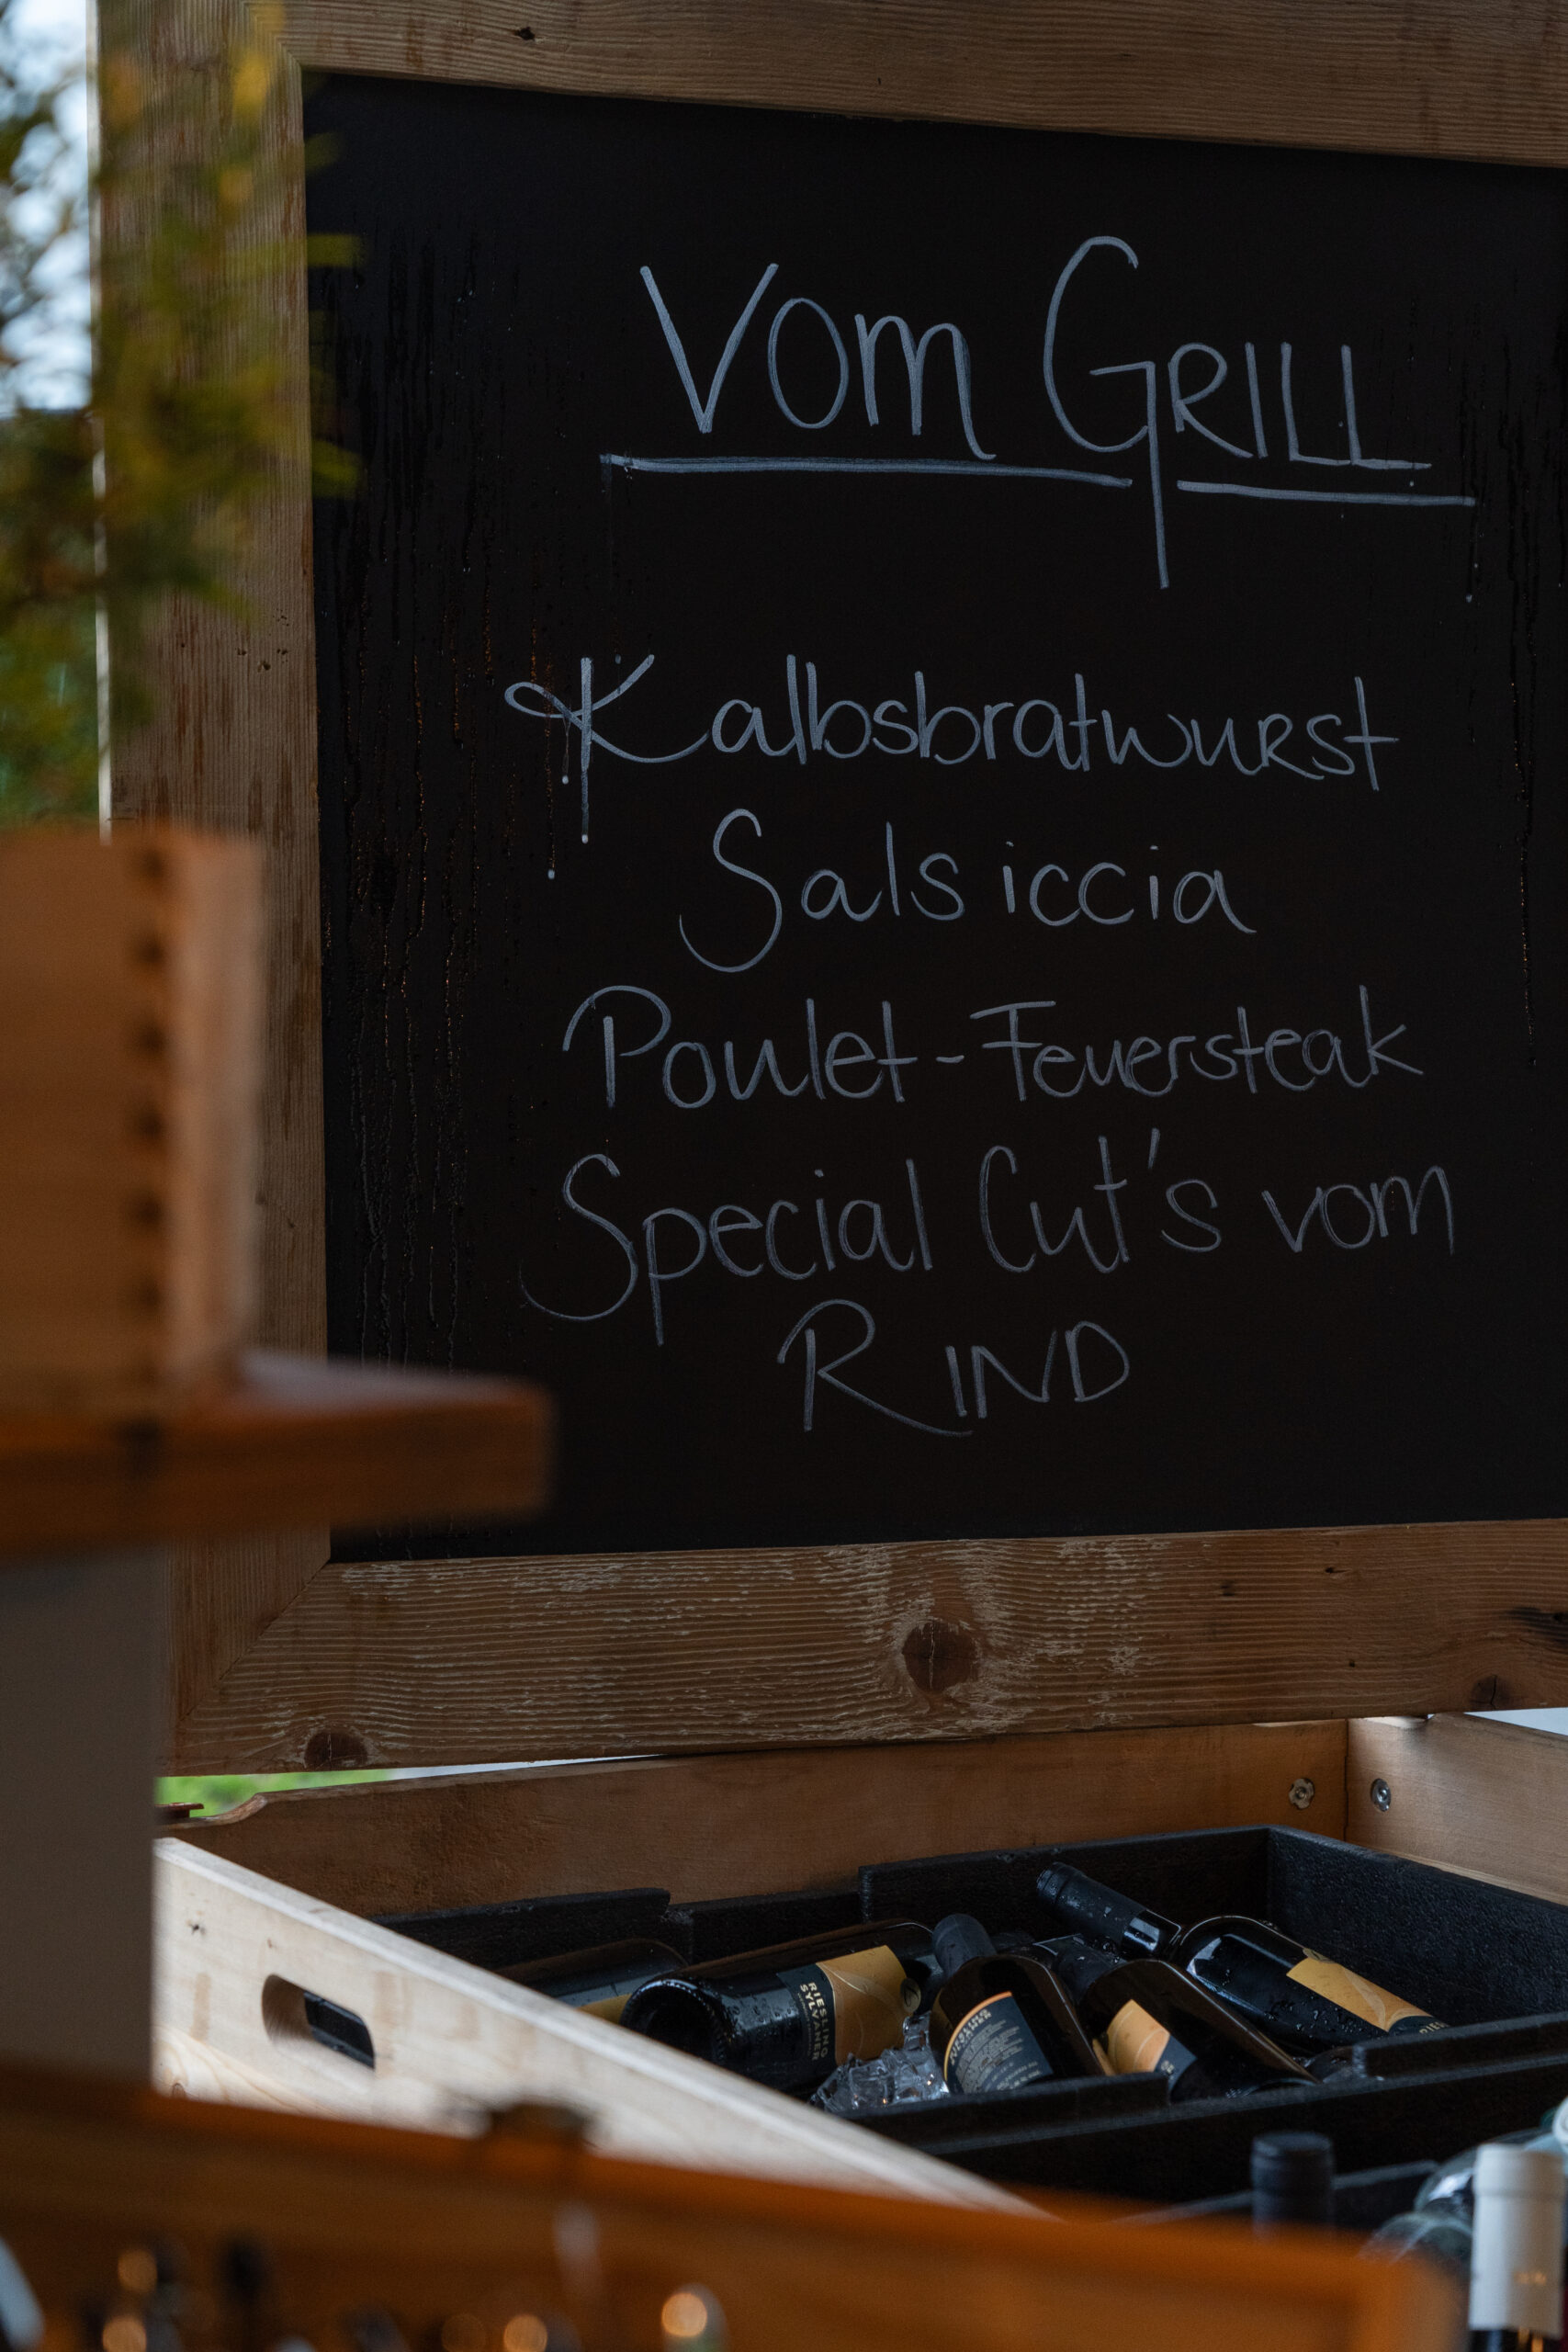 Vom GRILL
Kalbsbratwurst
Salsiccia
Poulet-Feuersteak
Special Cut's vom
RIND
RIESLING
SYLVANER